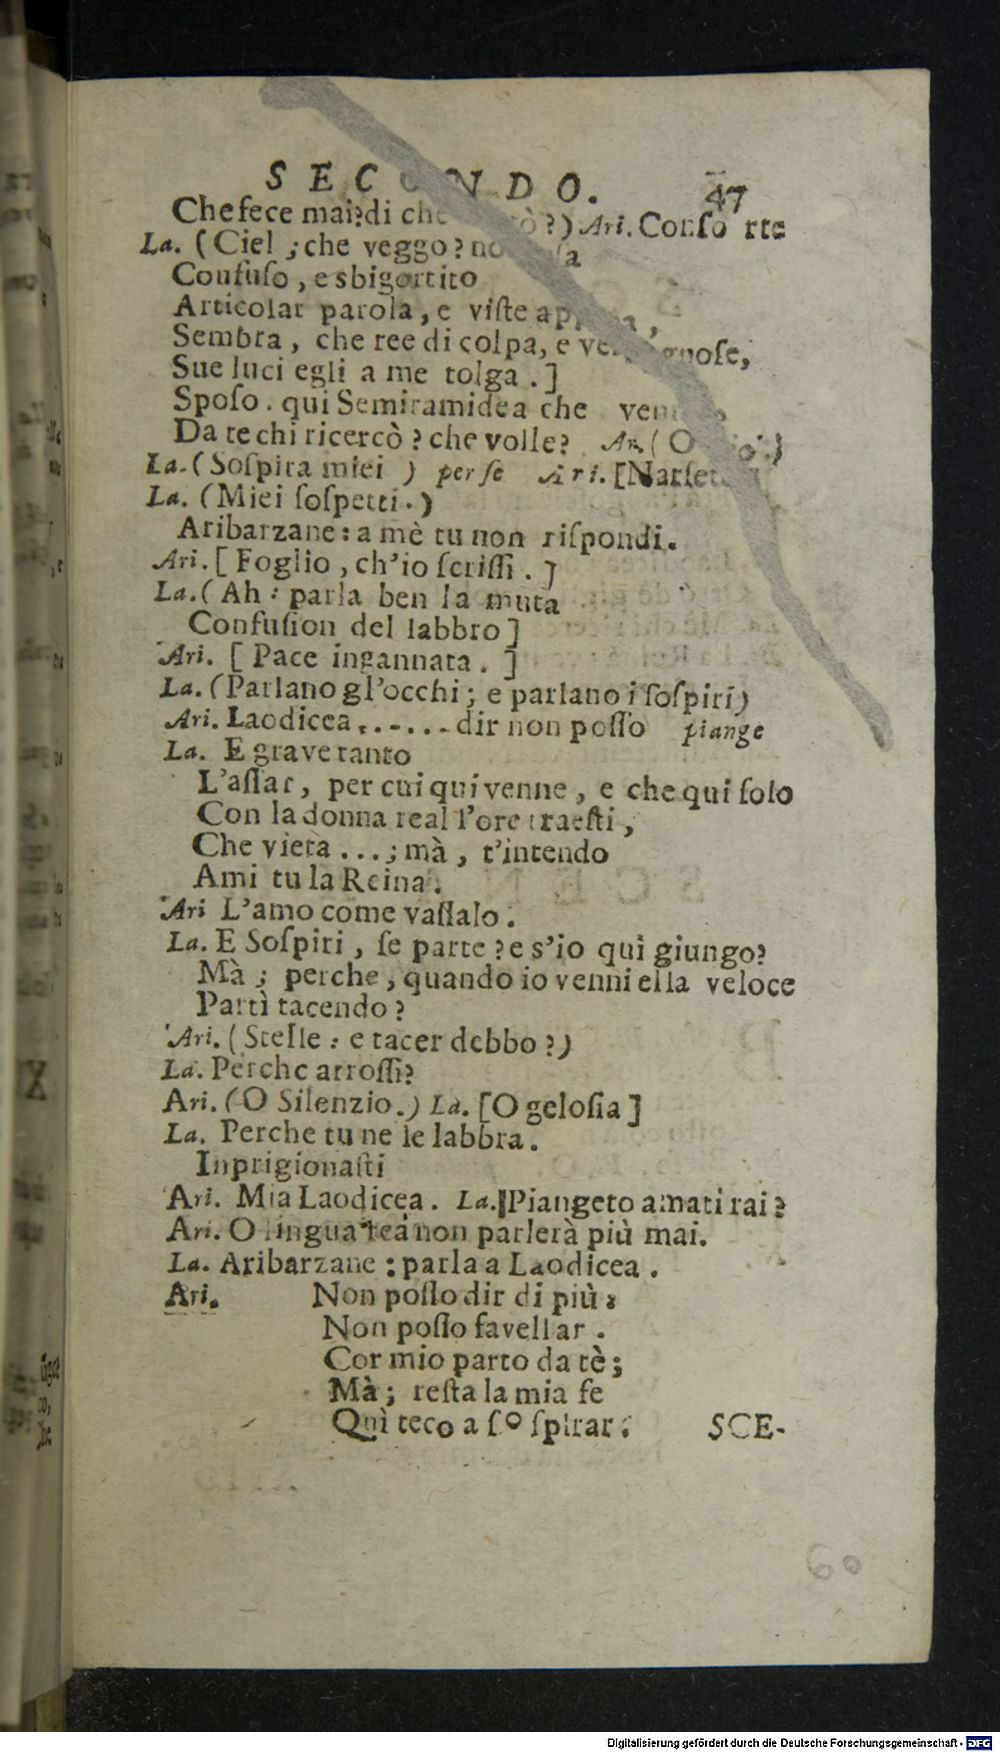 SECONDO. 47
Che fece mai? di che ?) Ari. Conso rte
La. (Ciel ; che veggo?
Confuso , e sbigottito
Articolar parola , e viste
Sembra , che ree di colpa, e
Sue luci egli a me tolga . ]
Sposo . qui Semiramide a che
Da te chi ricercò ? che volle? Ar. ( O
La. ( Sospira miei ) per se Ari.
La. (Miei sospetti . )
Aribarzane : a mè tu non rispondi.
Ari. [ Foglio , ch'io scrissi . ]
La. ( Ah : parla ben la muta
Confusion del labbro ]
Ari. [ Pace ingannata . ]
La. (Parlano gl'occhi ; e parlano i sospiri)
Ari. Laodicea . . - . . . dir non posso piange
La. E grave tanto
L'affar , per cui qui venne , e che qui solo
Con la donna real l'ore traesti ,
Che vieta . . . ; mà , t'intendo
Ami tu la Reina .
Ari L'amo come vassalo .
La. E Sospiri , se parte ? e s'io qui giungo?
Mà ; perche , quando io venni ella veloce
Partì tacendo ?
Ari. ( Stelle : e tacer debbo ? )
La. Perche arrossi?
Ari. (O Silenzio.) La. [O gelosia ]
La. Perche tu ne le labbra .
Inprigionasti
Ari. Mia Laodicea . La. ]Piangeto amati rai ?
Ari. O lingua rea non parlerà più mai.
La. Aribarzane : parla a Laodicea .
Ari. Non posso dir di più :
Non posso favellar .
Cor mio parto da tè ;
Mà ; resta la mia fe
Quì teco a sospirar . SCE-
60
Digitalisierung gefördert durch die Deutsche Forschungsgemeinschaft - DFG